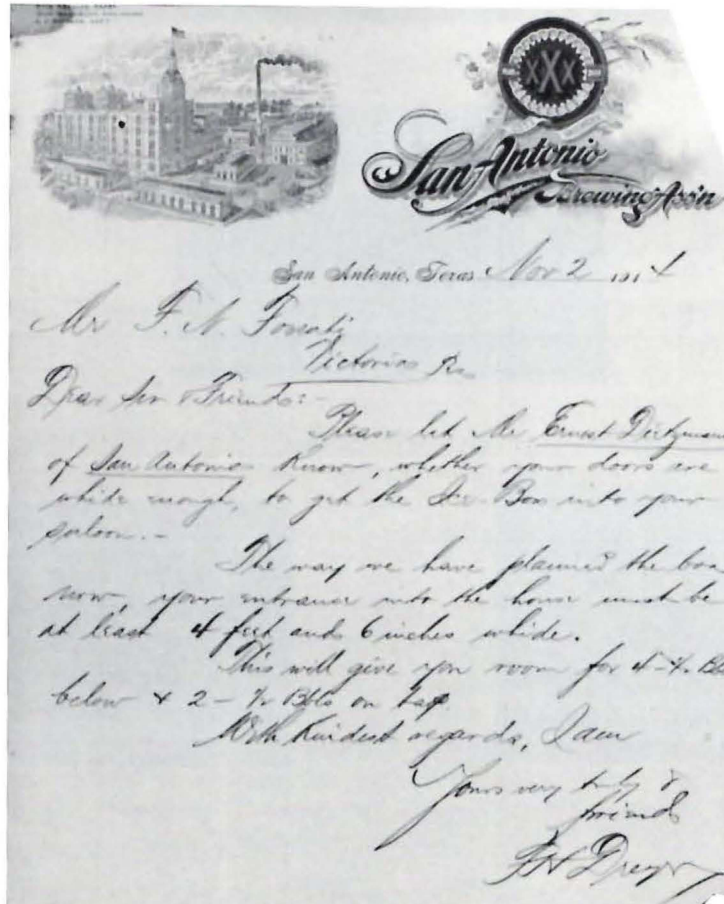 XXX
San Antonio
Brewing Ass'n
San Antonio, Texas Nov 2 1914
Mr F. N.
Victoria
Dear Sir & Friends:-
Please let Mr Ernest
of San Antonio know, whether your doors are
white enough, to get the Ice Box into your
saloon.-
The way we have planned the box
now, your entrance into the house must be
at least 4 feet and 6 inches white.
This will give you room for 4-
below & 2- Bbls on top
With Kindest regards, I am
Yours very truly &
friend